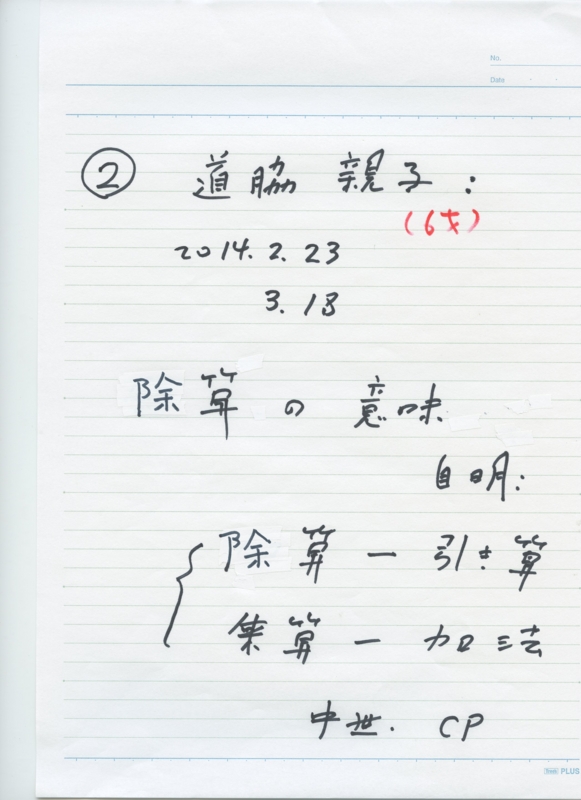 No.
Date
② 道脇 親子:
(6才)
2014.2.23
3.18
除算 の 意味
自明:
除算 ー 引き算
乗算 ー 加法
中世. CP
PLUS